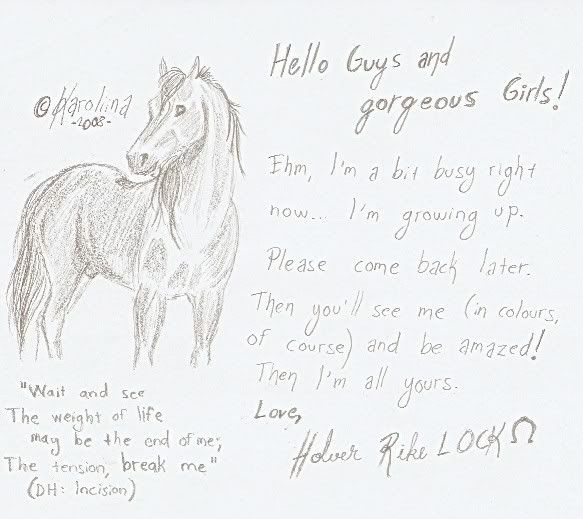 © Karolina
-2008-
Hello Guys and
gorgeous Girls!
Ehm, I'm a bit busy right
now... I'm growing up.
Please come back later.
Then you'll see me (in colours,
of course) and be amazed!
Then I'm all yours.
Love,
Holver Rike LOCK Ω
"Wait and see
The weight of life
may be the end of me;
The tension, break me"
(DH: Incision)